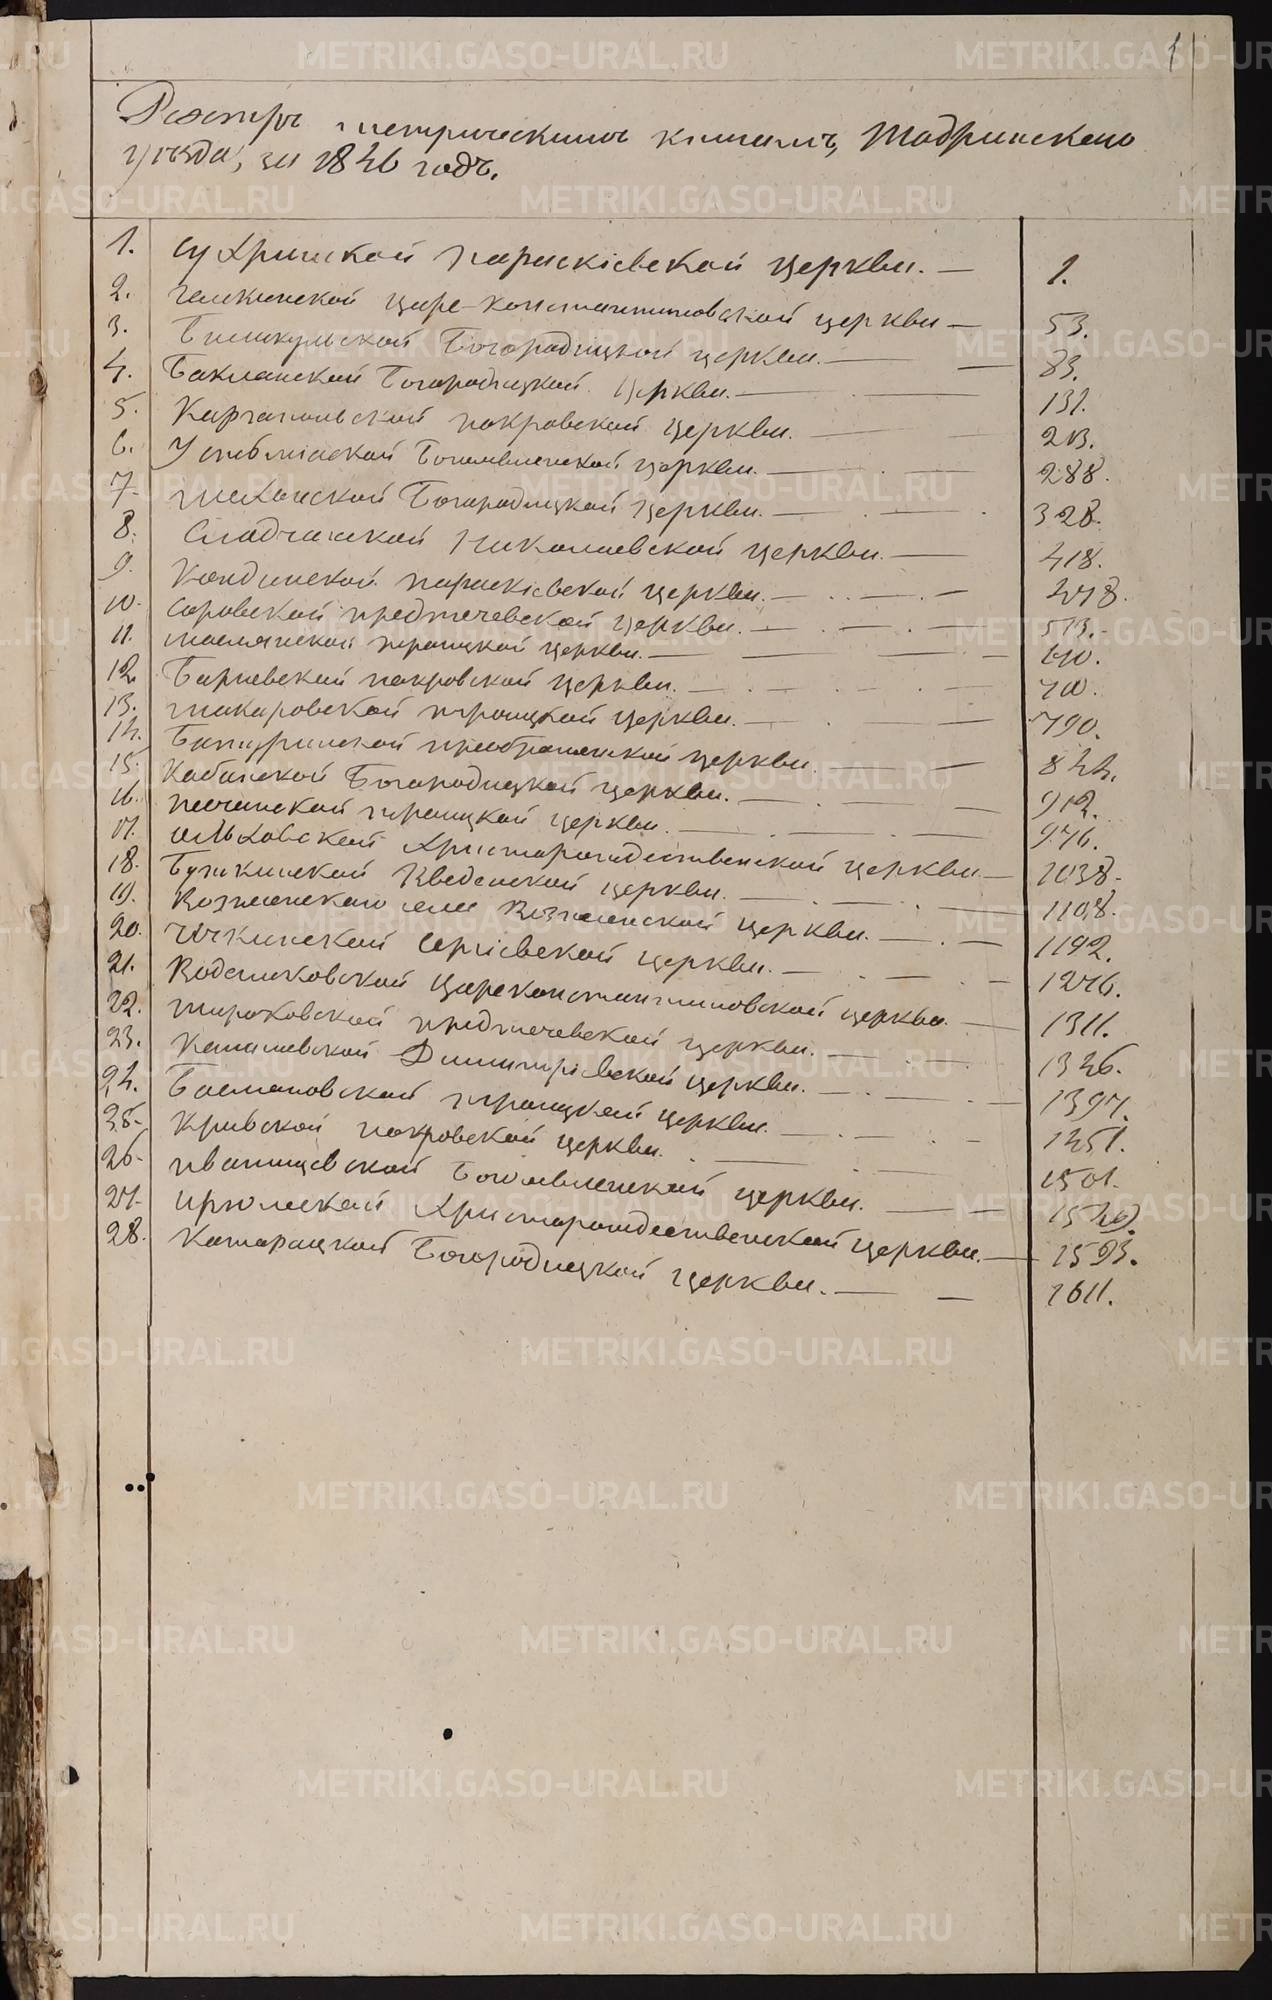 1
Реэстръ метрическимъ книгамъ, Шадринскаго
уѣзда, за 1846 годъ.
1. Сухринской параскіевской церкви. — 1.
2. Галкинской царе-константиновской церкви — 53.
3. Бишкульской Богородицкой церкви. — 83.
4. Бакланской Богородицкой церкви. — 131.
5. Каргапольской покровской церкви. — 213.
6. Усть-Міаской Богоявленской церкви. — 288.
7. Богородицкой церкви. — 328.
8. Сладчанской Николаевской церкви. — 418.
9. Кондинской параскіевской церкви. — 478.
10. Соровской предтечевской церкви. — 513.
11. Маслянской троицкой церкви. —
12. Барневской покровской церкви. —
13. Макаровской троицкой церкви. — 790.
14. Батуринской преображенской церкви. — 844.
15. Кабанской Богородицкой церкви. — 912.
16. Песчанской троицкой церкви. — 976.
17. Ольховской Христорождественской церкви — 1038.
18. Буткинской Введенской церкви. — 1108.
19. Вознесенскаго села Вознесенской церкви. — 1192.
20. Юкинской Сергіевской церкви. — 1276.
21. Воденниковской Цареконстантиновской церкви. — 1311.
22. Широковской предтечевской церкви. — 1346.
23. Канашевской Димитріевской церкви. — 1397.
24. Басмановской троицкой церкви. — 1451.
25. Кривской покровской церкви. — 1501.
26. Иванищевской Богоявленской церкви. —
27. Ирюмской Христорождественской церкви. — 1593.
28. Катарацкой Богородицкой церкви. — 1611.
METRIKI.GASO-URAL.RU